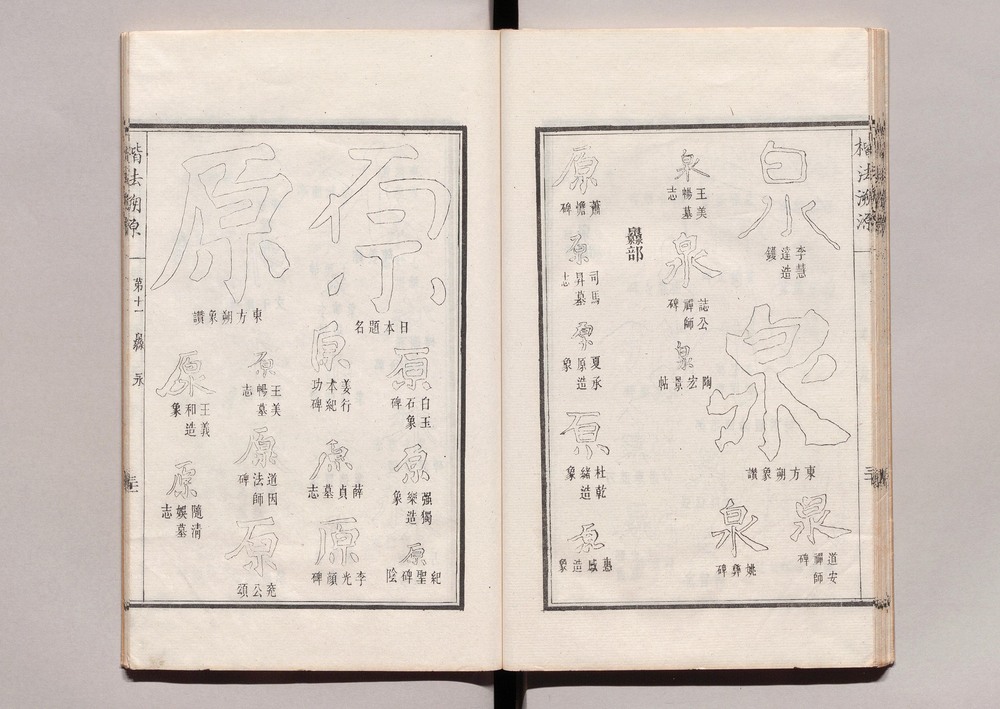 楷法溯源
泉
李慧達造鐫
泉
東方朔象讚
泉
道安禪師碑
泉
王美暢墓志
泉
誌公禪師碑
泉
陶宏景帖
泉
姚彝碑
灥部
原
蕭憺碑
原
司馬昇墓志
原
夏承原造象
原
杜乾緒造象
原
惠感造象
原
日本題名
原
白玉石象碑
原
强獨樂造象
原
紀聖碑陰
原
姜行本紀功碑
原
薛貞墓志
原
李光顏碑
原
東方朔象讚
原
王美暢墓志
原
道因法師碑
原
兗公頌
原
王義和造象
原
隨清娛墓志
楷法溯原
第十一 灥 永